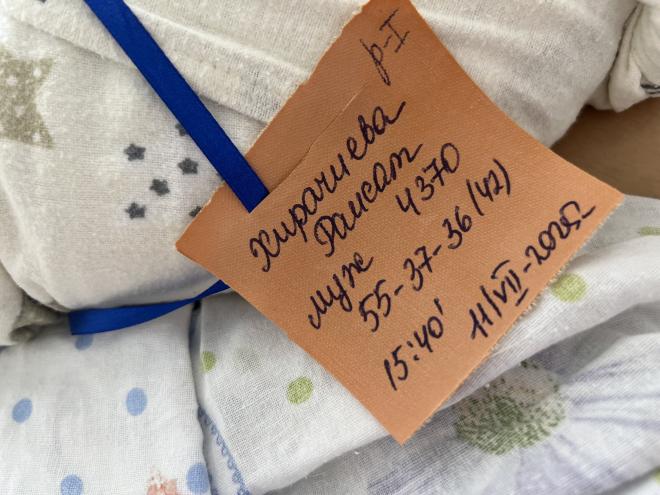 р-I
Хирачиева
Раисат
муж 4370
55-37-36 (42)
15:40' 11/VII-2025г